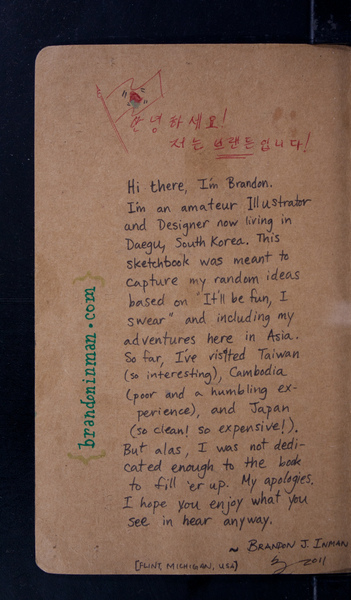 안녕하세요!
저는 브랜든입니다!
Hi there, I'm Brandon.
I'm an amateur Illustrator
and Designer now living in
Daegu, South Korea. This
sketchbook was meant to
capture my random ideas
based on "It'll be fun, I
swear" and including my
adventures here in Asia.
So far, I've visited Taiwan
(so interesting), Cambodia
(poor and a humbling ex-
perience), and Japan
(so clean! so expensive!).
But alas, I was not dedi-
cated enough to the book
to fill 'er up. My apologies.
I hope you enjoy what you
see in hear anyway.
~ BRANDON J. INMAN
2011
[FLINT, MICHIGAN, USA]
{brandoninman.com}